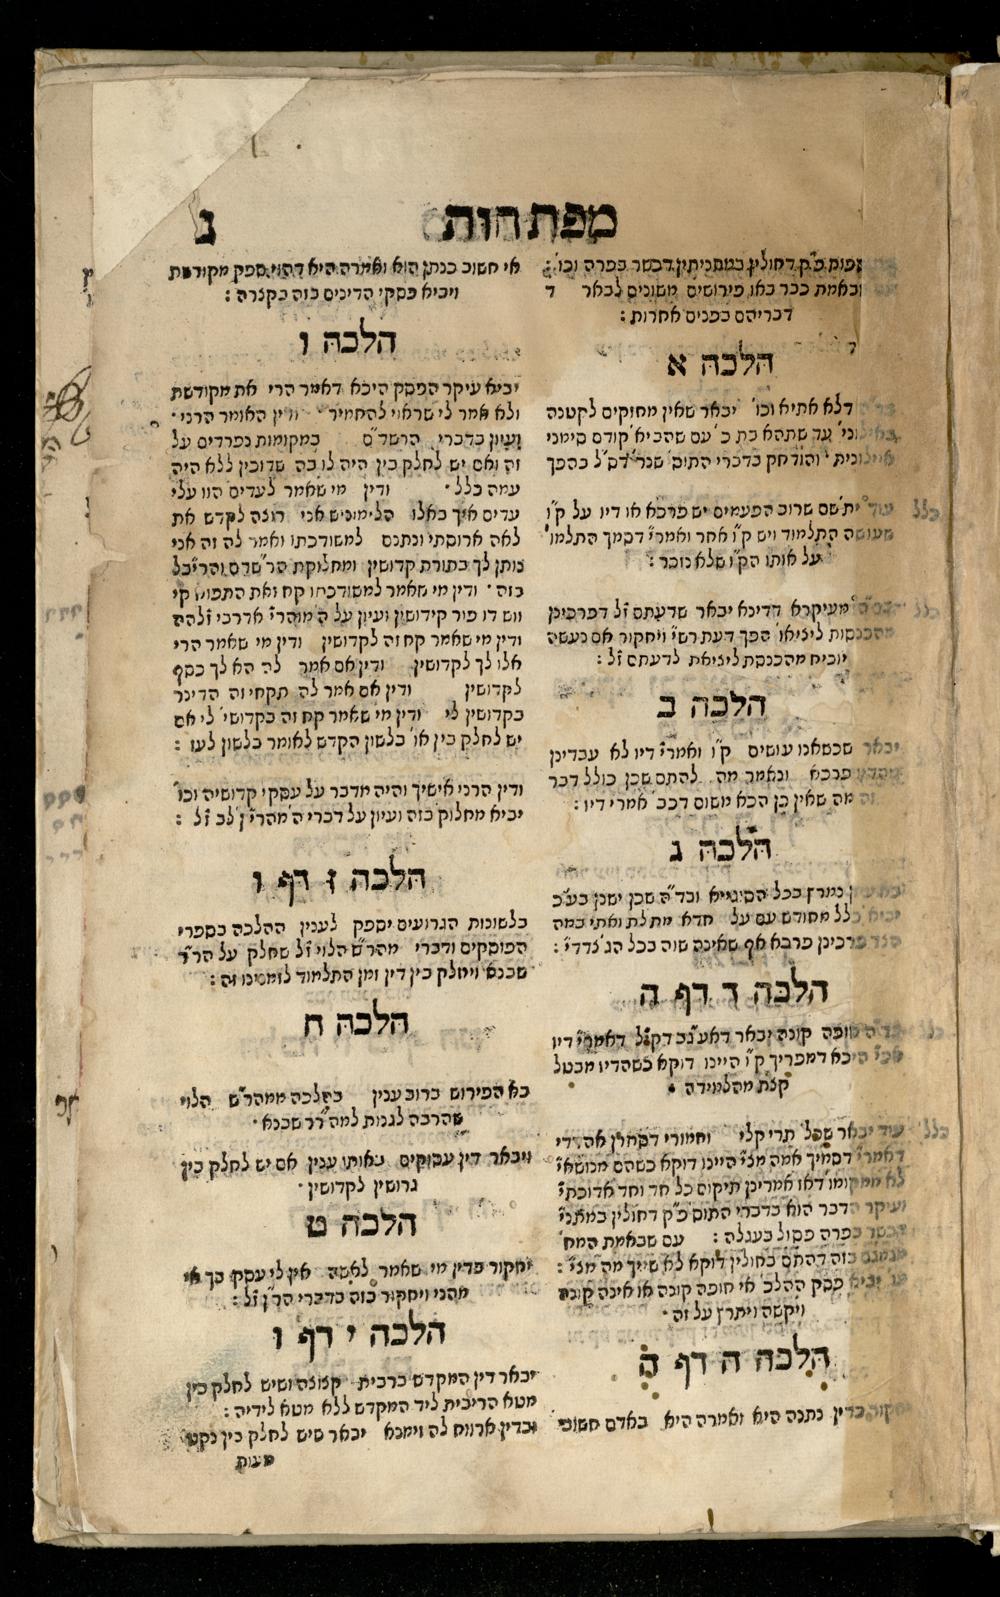 מפתחות
ג
פ״ק דחולין במתניתין דכשר בפרה וכו׳ :
ובאמת כבר באו פירושים משונים לבאר ד
דבריהם בפנים אחרות :
הלכה א
דלא אתיא וכו׳ יבאר שאין מחזקים לקטנה
עד שתהא בת כ׳ עם שהביא קודם סימני
והודחק בדברי התוס׳ שנר׳ דס״ל בהפך
כלל
עוד ית׳ שם שרוב הפעמים יש פרכא או דיו על ק״ו
שעושה התלמוד ויש ק״ו אחר ואמרי׳ דסמך התלמו׳
על אותו הק״ו שלא נזכר :
כלל
מעיקרא דדינא יבאר שדעתם ז״ל דפרכינן
מהכנסות ליציאו׳ הפך דעת רש״י ויחקור אם נעשה
יוכיח מהכנסת ליציאת לדעתם ז״ל :
הלכה ב
יבאר שכשאנו עושים ק״ו ואמרי׳ דיו לא עבדינן
פרכא ונאמר מה להתם שכן כולל דבר
זה מה שאין כן הכא משום דכבר אמרי׳ דיו :
הלכה ג
נמרץ בכל הסוגייא ובד״ה שכן ישנן בע״כ
יביא כלל מחודש עם על חדא מתלת ואתי במה
פרכינן פרבא אף שאינה שוה בכל הג׳ צדדי׳ :
הלכה ד דף ה
כלל
חופה קונה יבאר דאע״ג דק״ל דאמרי׳ דיו
היכא דמפריך ק״ו היינו דוקא כשהדיו מבטל
קצת מהלמידה •
כלל
עוד יבאר שכל תרי קלי וחמורי דמחרן אהדדי
דאמרי׳ דסמיך אמה מצי׳ היינו דוקא כשהם מכושאי׳
לא ממקומו דאז אמרינן תיקום כל חד וחד אדוכתי׳
ועיקר הדבר הוא בדברי התוס׳ פ״ק דחולין במאני׳
הכשר בפרה פסול בעגלה : עם שבאמת המח׳
כזה דהתם בחולין דוקא לא שייך מה מצי׳ :
יביא פסק ההלכ׳ אי חופה קונה או אינה קונה
ויקשה ויתרץ על זה •
הלכה ה דף ה
בדין נתנה היא ואמרה היא באדם חשוב
אי חשוב כנתן הוא ואמרה היא דהוי ספק מקודשת
ויביא פסקי הדינים בזה בקצרה :
הלכה ו
יביא עיקר הפסק היכא דאמר הרי את מקודשת
ולא אמר לי שראוי להחמיר ודין האומר הרני •
ועיון בדברי הרשד״ם במקומות נפרדים על
זה ואם יש לחלק בין היה לו בה שדוכין ללא היה
עמה כלל • ודין מי שאמר לעדים הוו עלי
עדים איך באלו הלימוניש אני רוצה לקדש את
לאה ארוסתי ונתנם למשודכתו ואמר לה זה אני
נותן לך בתורת קדושין ומחלוקת הר״שדם והריב״ל
בזה • ודין מי שאמר למשודכתו קח זאת התפוח קי
ווש דו פור קידושין ועיון על ה מוהר״י אדרבי ז״לה
ודין מי שאמר קח זה לקדושין ודין מי שאמר הרי
אלו לך לקדושין ודין אם אמר לה הא לך כסף
לקדושין ודין אם אמר לה תקחי זה הדינר
בקדושין לי ודין מי שאמר קח זה בקדושי׳ לי אם
יש לחלק בין או׳ בלשון הקדש לאומר בלשון לעז :
ודין הרני אישיך והיה מדבר על עסקי קדושיה וכו׳
יביא מחלוק׳ בזה ועיון על דברי ה׳מהרי״ן לב ז״ל :
הלכה ז דף ו
בלשונות הגרועים יספק לענין ההלכה בספרי
הפוסקים ודברי מהר״ש הלוי ז״ל שחלק על הר״ד
שבנא ויחלק בין דין זמן התלמוד לזמנינו זה :
הלכה ח
בא הפירוש ברוב ענין בהלכה ממהר״ש הלוי
שהרבה לגנות למה״רר שבנא •
ויבאר דין עסוקים באותו ענין אם יש לחלק בין
גרושין לקדושין •
הלכה ט
יחקור בדין מי שאמר לאשה אין לי עסק בך אי
מהני ויחקור בזה בדברי הר״ן ז״ל :
הלכה י דף ו
יבאר דין המקדש ברבית קצוצה ושיש לחלק בין
מטא הריבית ליד המקדש ללא מטא לידיה :
ובדין ארווח לה זימנא יבאר שיש לחלק בין נקט
מעות